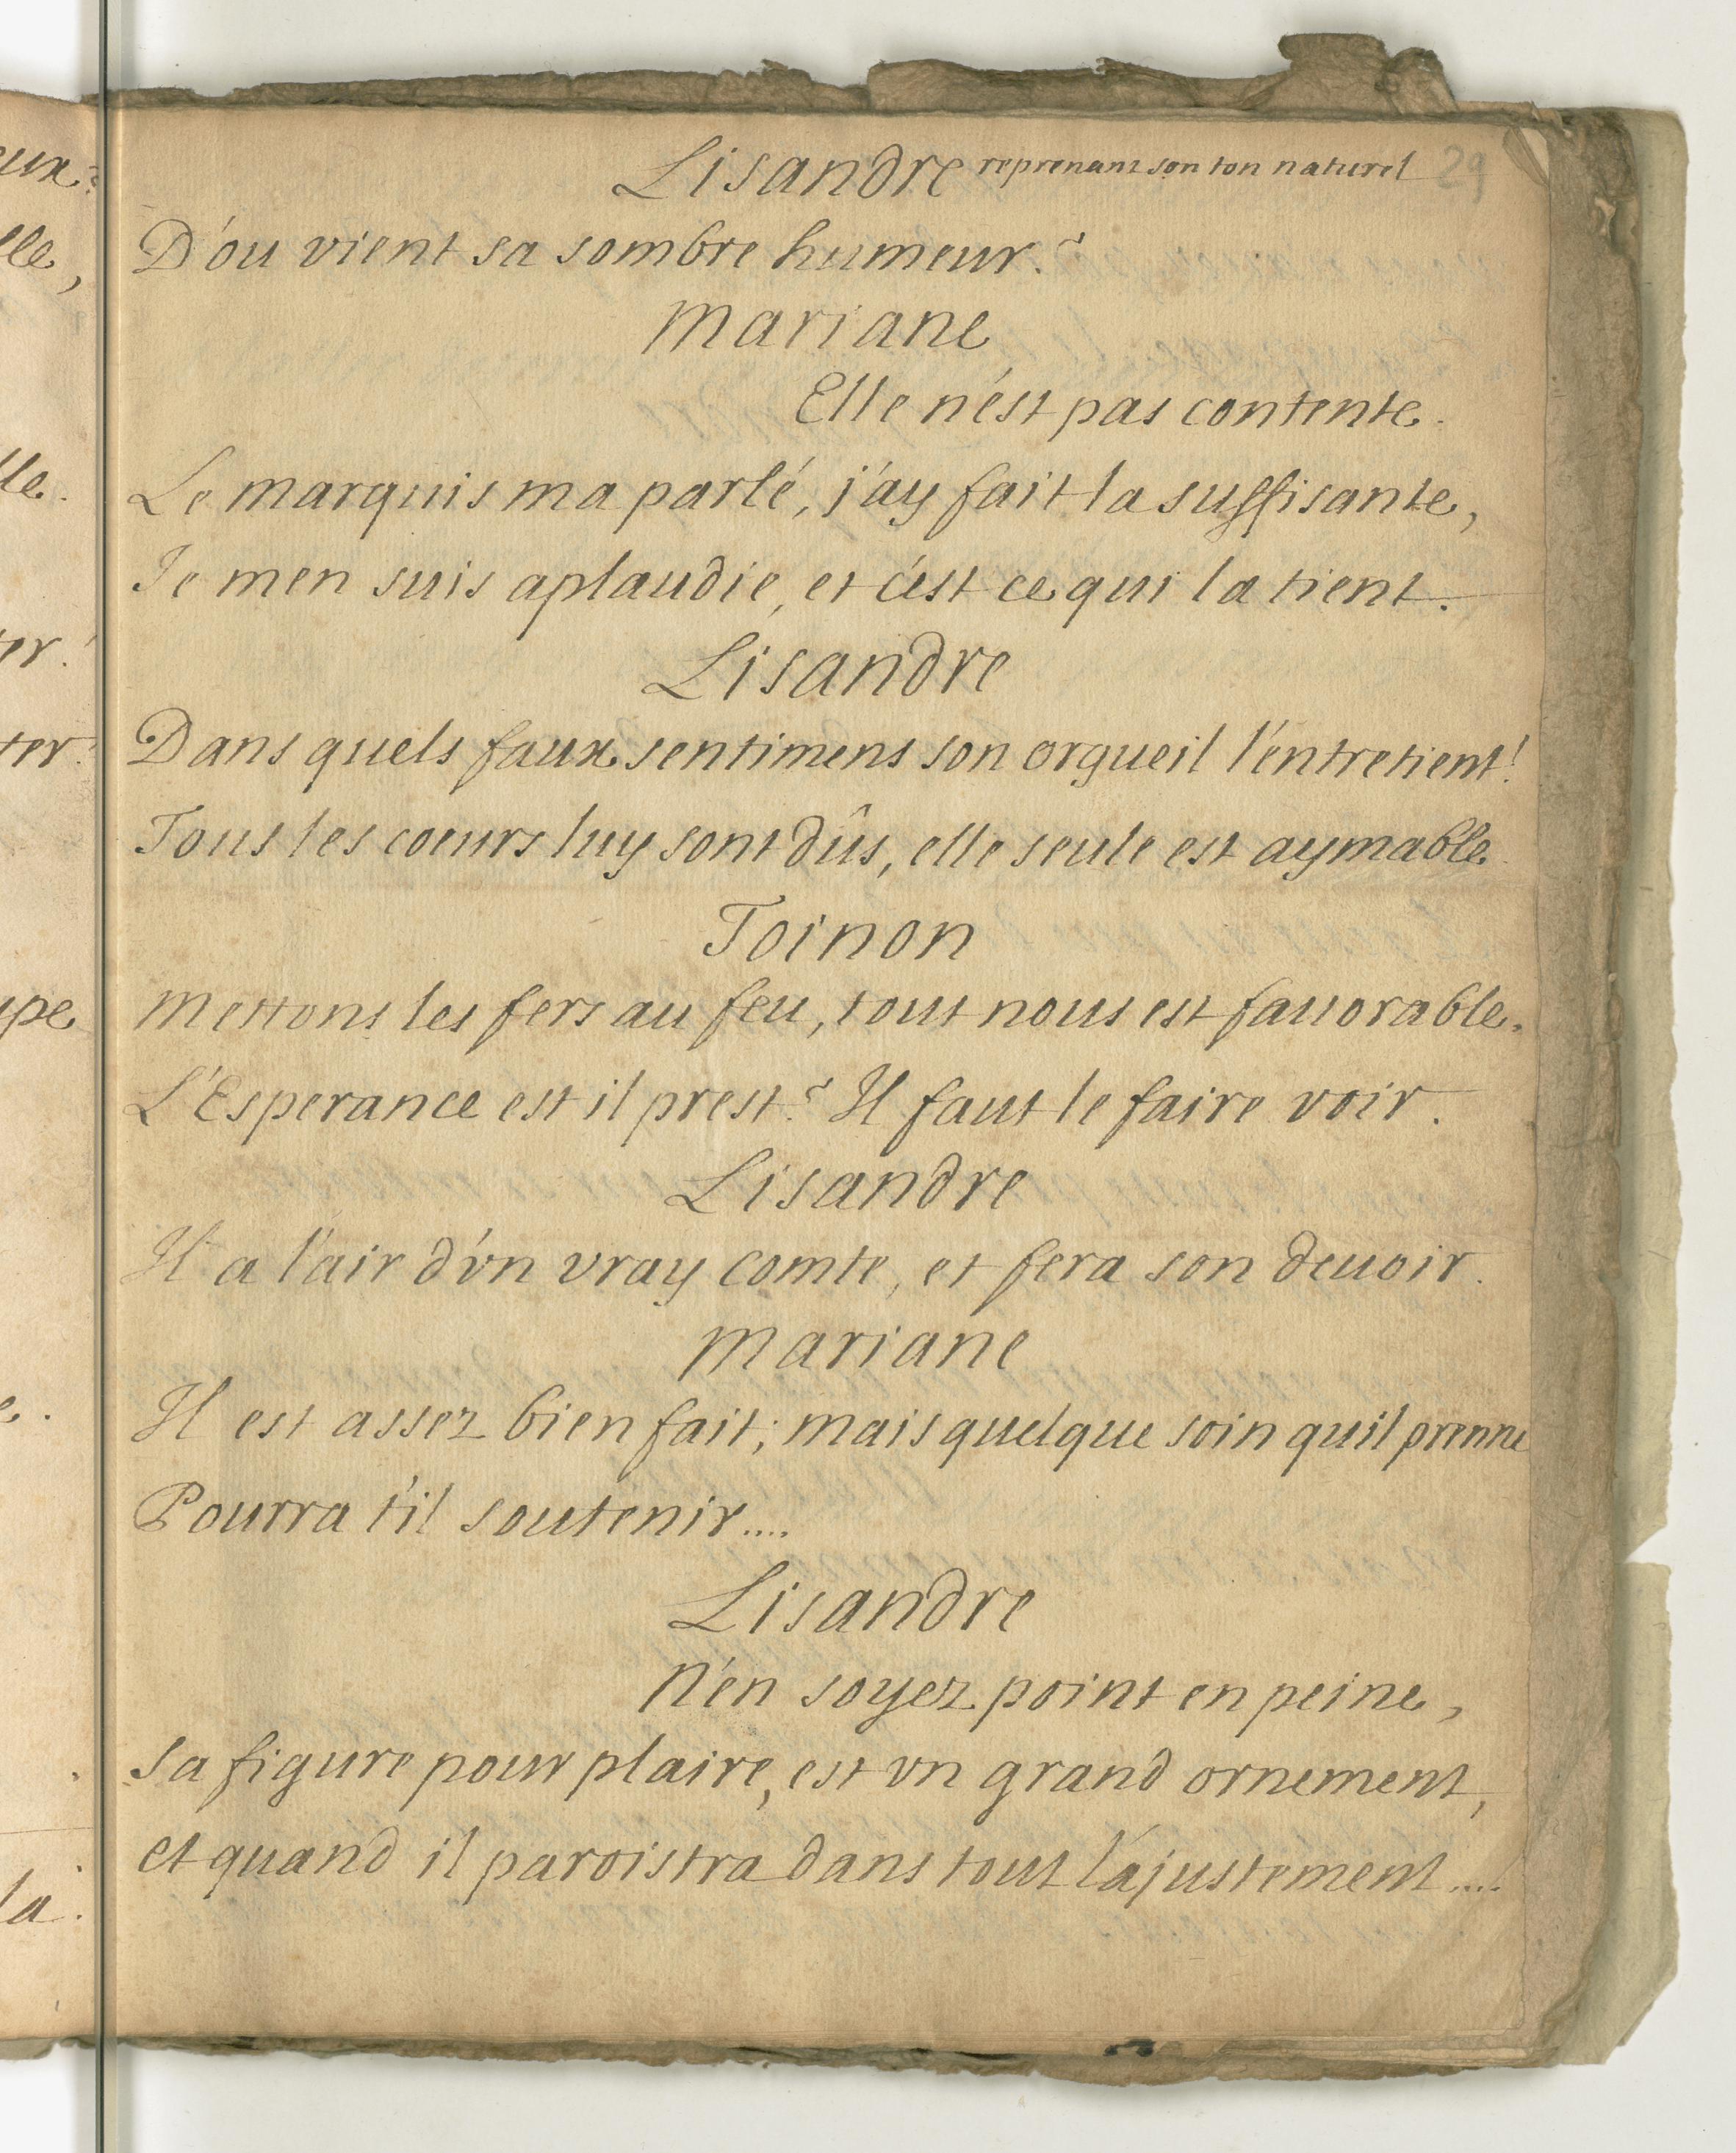 Lisandre reprenant son ton naturel 29
D'ou vient sa sombre humeur?
Mariane
Elle n'est pas contente.
Le marquis ma parlé, j'ay fait la suffisante,
Je men suis aplaudie, et c'est ce qui la tient.
Lisandre
Dans quels faux sentimens son orgueil l'entretient!
Tous les coeurs luy sont dûs, elle seule est aymable.
Toinon
Mettons les fers au feu, tout nous est fauorable.
L'Esperance est il prest? Il faut le faire voir.
Lisandre
Il a l'air d'vn vray comte, et fera son deuoir.
Mariane
Il est assez bien fait; mais quelque soin qu'il prenne
Pourra t'il soutenir....
Lisandre
N'en soyez point en peine,
Sa figure pour plaire, est vn grand ornement,
et quand il paroistra dans tout l'ajustement....